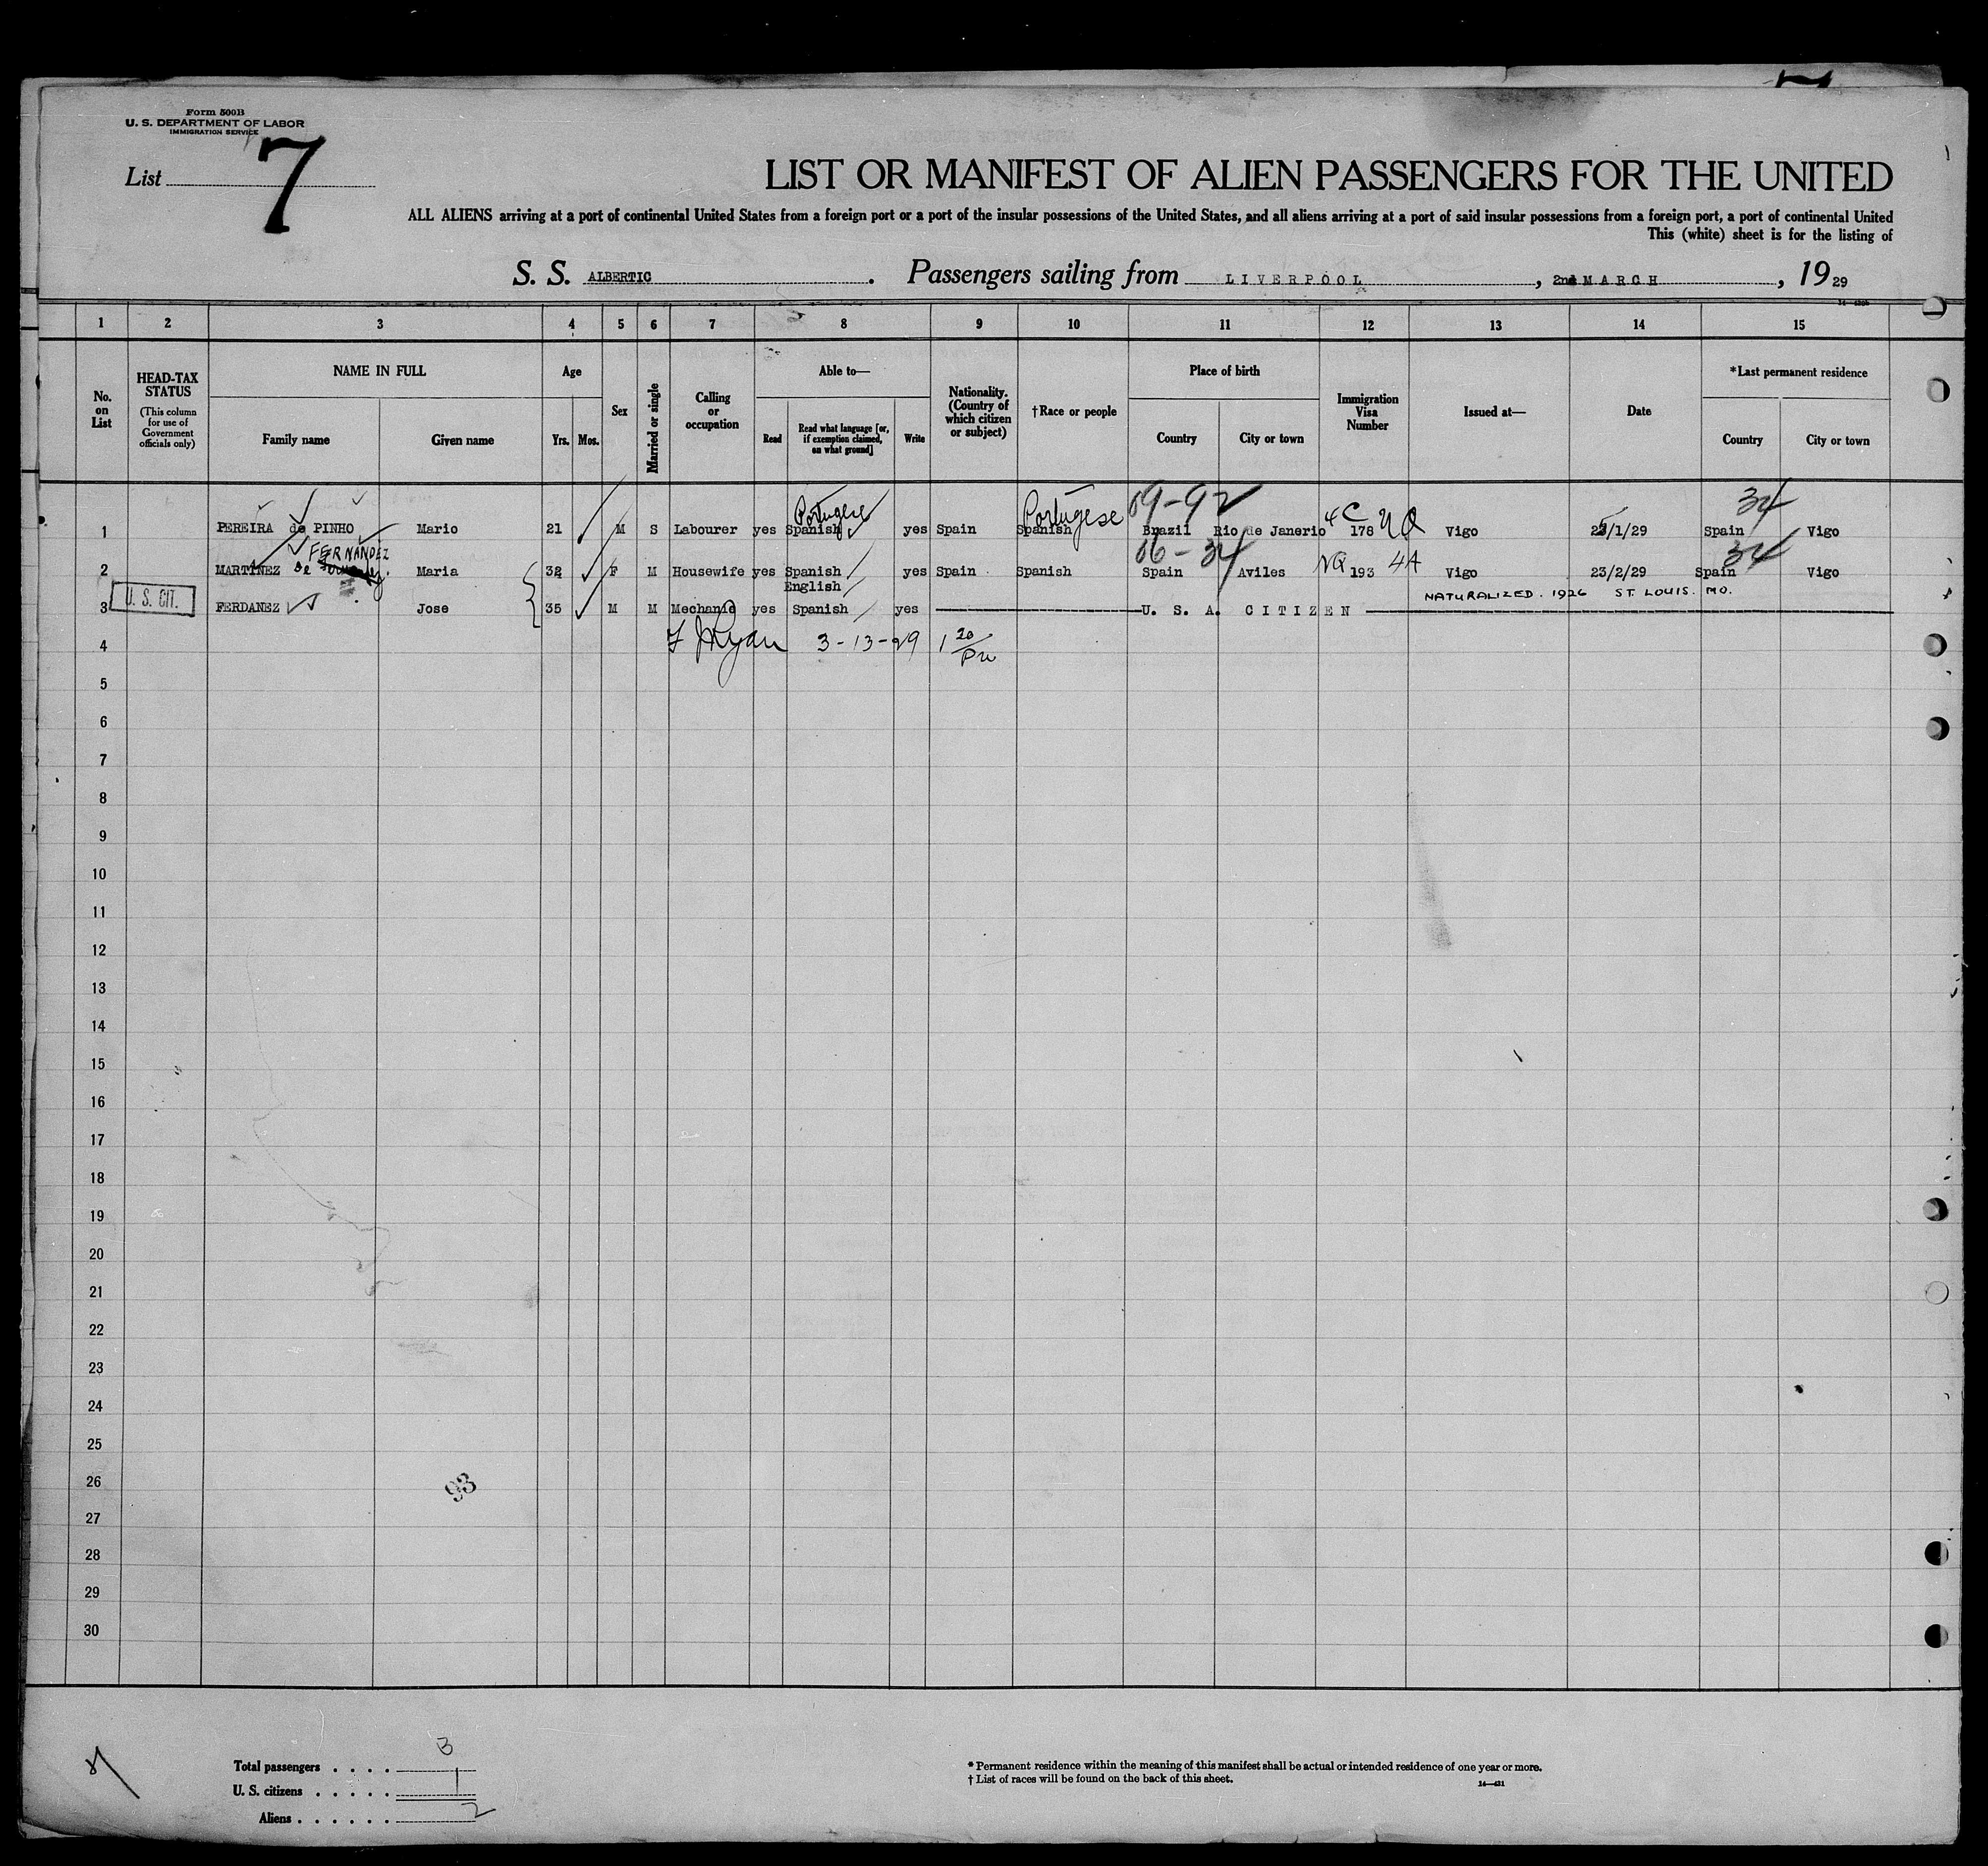 Form 500B
U. S. DEPARTMENT OF LABOR
IMMIGRATION SERVICE
List 7
LIST OR MANIFEST OF ALIEN PASSENGERS FOR THE UNITED
ALL ALIENS arriving at a port of continental United States from a foreign port or a port of the insular possessions of the United States, and all aliens arriving at a port of said insular possessions from a foreign port, a port of continental United
This (white) sheet is for the listing of
S. S. ALBERTIC. Passengers sailing from LIVERPOOL, 2nd MARCH, 1929
1 2 3 4 5 6 7 8 9 10 11 12 13 14 15
No. on List
HEAD-TAX STATUS
(This column for use of Government officials only)
NAME IN FULL
Family name Given name
Age
Yrs. Mos.
Sex
Married or single
Calling or occupation
Able to—
Read
Read what language [or, if exemption claimed, on what ground]
Write
Nationality. (Country of which citizen or subject)
†Race or people
Place of birth
Country City or town
Immigration Visa Number
Issued at—
Date
*Last permanent residence
Country City or town
Portugese Portugese 69-92 34
1 PEREIRA de PINHO Mario 21 M S Labourer yes Spanish yes Spain Spanish Brazil Rio de Janerio 4C 178 NQ Vigo 25/1/29 Spain Vigo
FERNANDEZ 66-34 34
2 MARTINEZ de Maria 32 F M Housewife yes Spanish yes Spain Spanish Spain Aviles NQ 193 4A Vigo 23/2/29 Spain Vigo
U. S. CIT. English NATURALIZED. 1926 ST. LOUIS. MO.
3 FERDANEZ Jose 35 M M Mechanic yes Spanish yes U. S. A. CITIZEN
4 F J Ryan 3-13-29 1 20/PM
5
6
7
8
9
10
11
12
13
14
15
16
17
18
19
20
21
22
23
24
25
26 93
27
28
29
30
Total passengers . . . . 3
U. S. citizens . . . . . 1
Aliens . . . . . . 2
* Permanent residence within the meaning of this manifest shall be actual or intended residence of one year or more.
† List of races will be found on the back of this sheet.
14—431